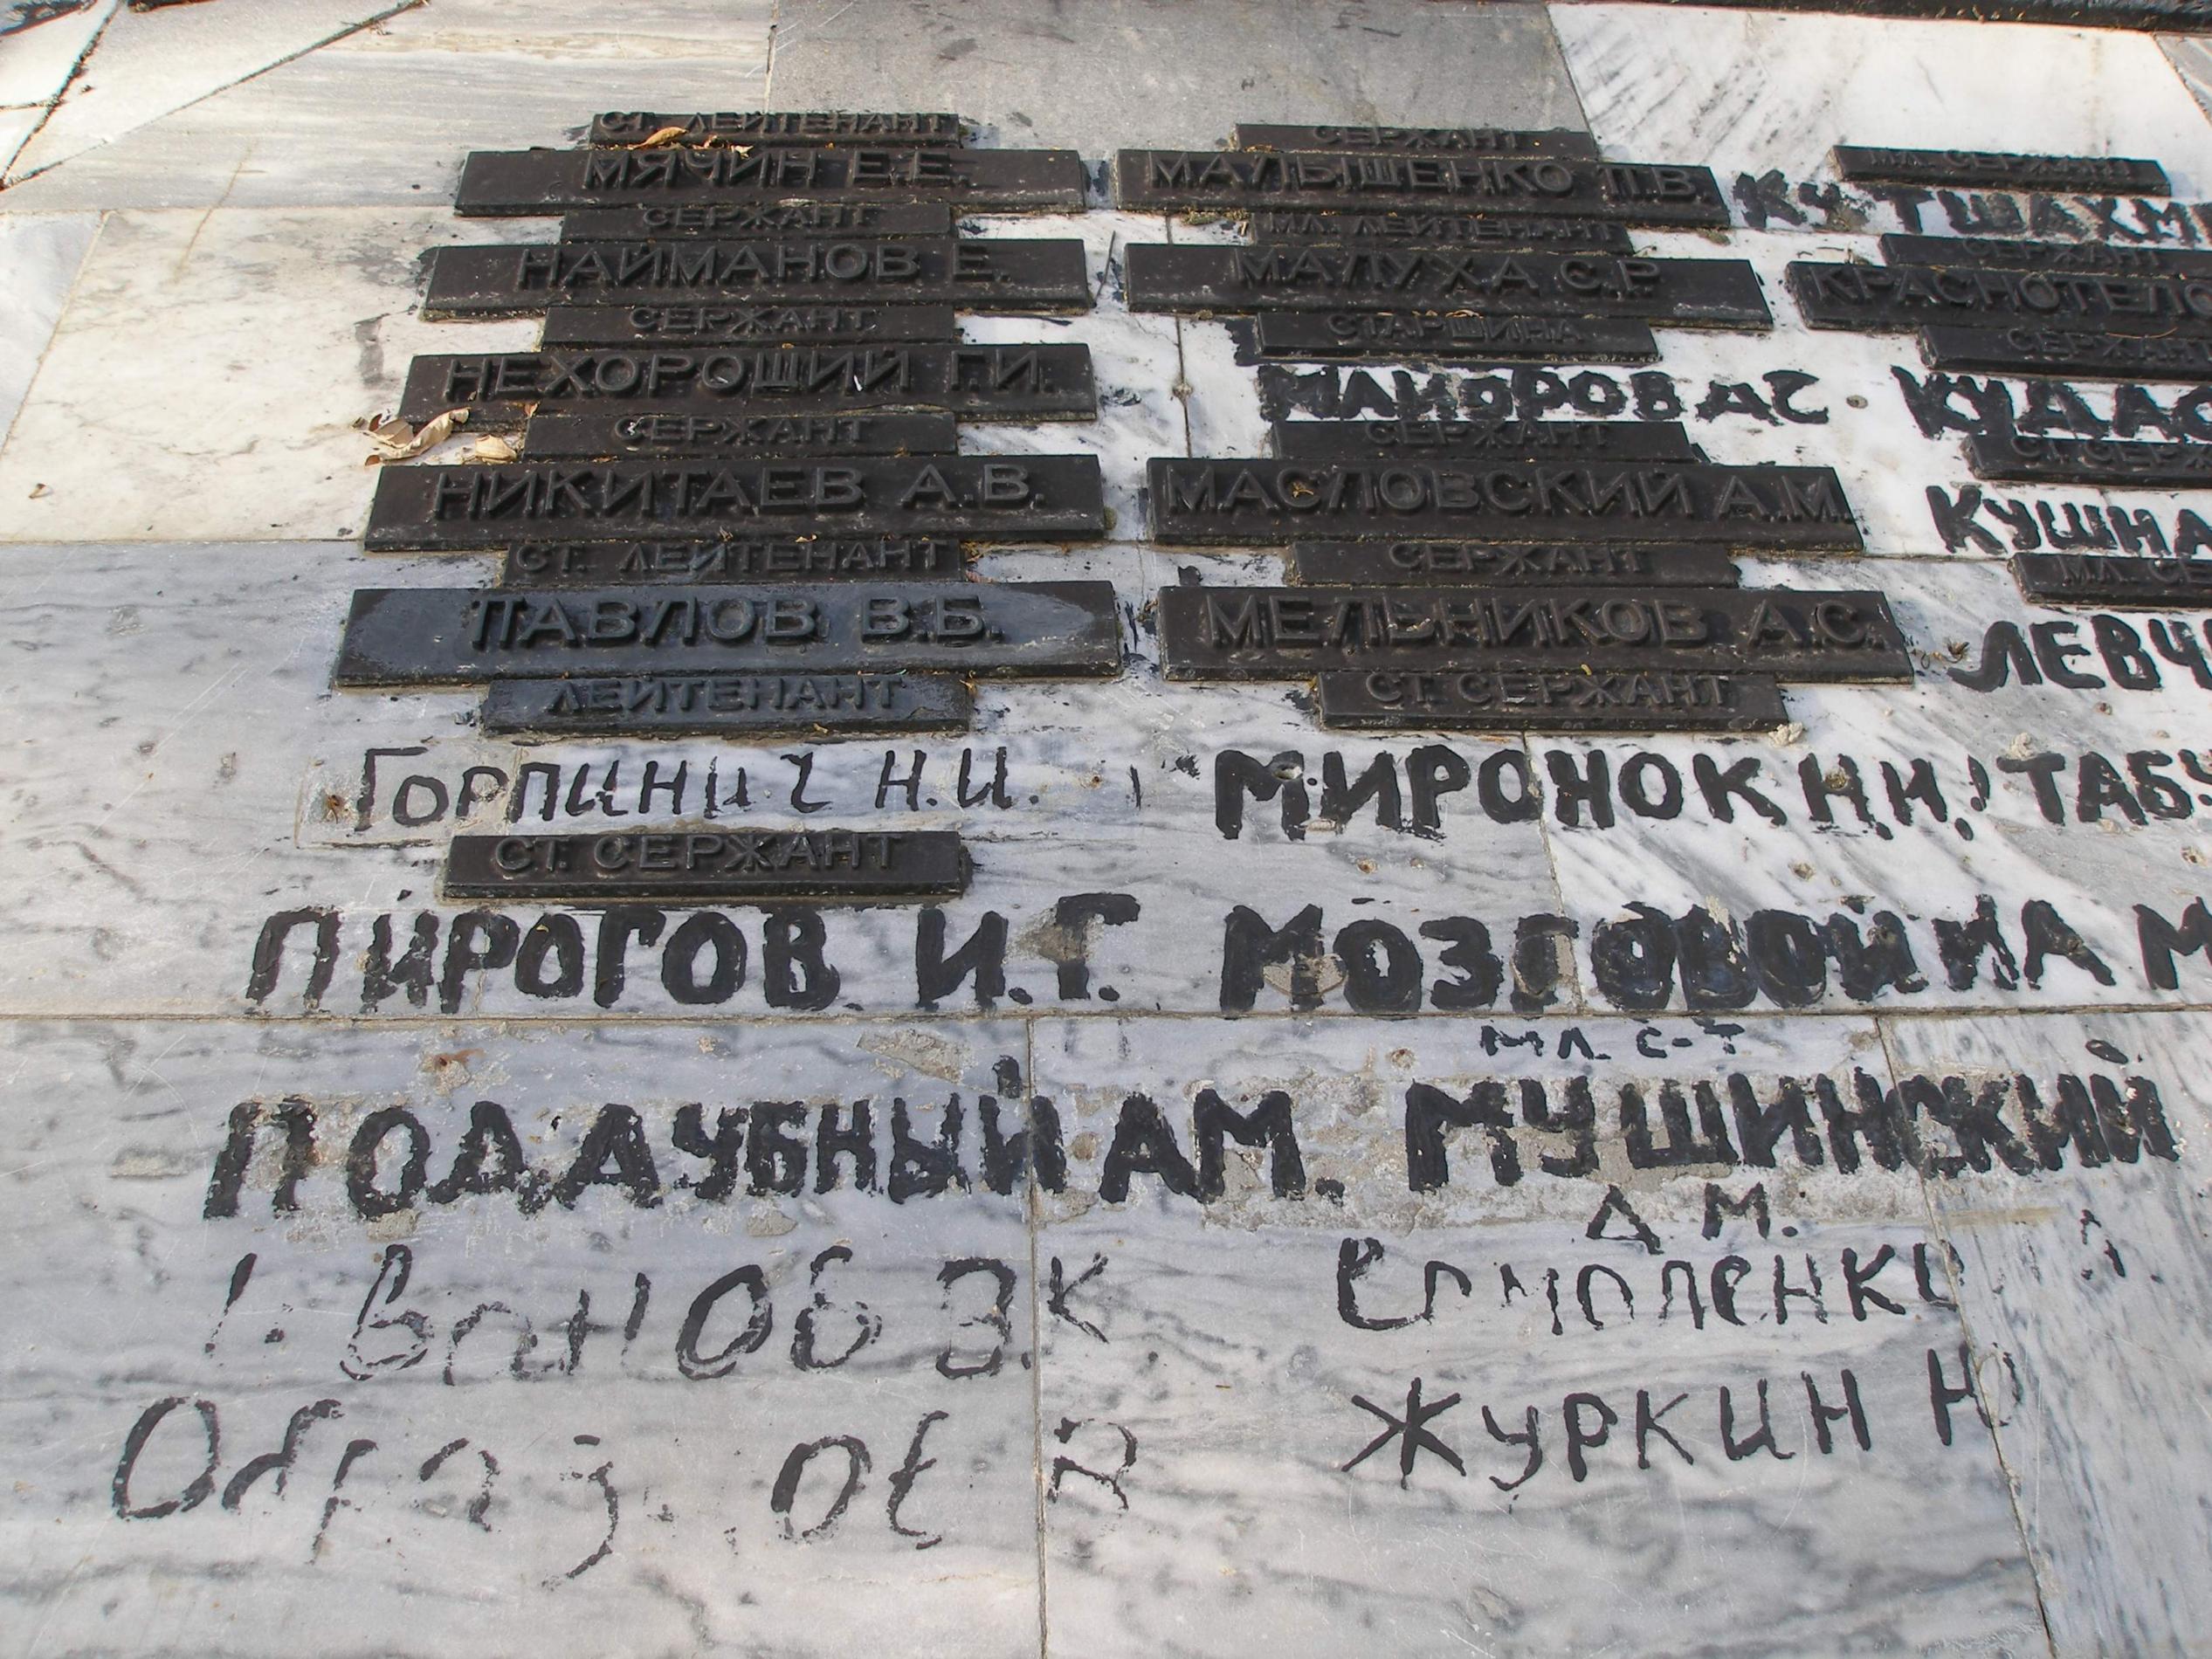 СТ. ЛЕЙТЕНАНТ
МЯЧИН Е.Е.
СЕРЖАНТ
НАЙМАНОВ Е.
СЕРЖАНТ
НЕХОРОШИЙ Г.И.
СЕРЖАНТ
НИКИТАЕВ А.В.
СТ. ЛЕЙТЕНАНТ
ПАВЛОВ В.Б.
ЛЕЙТЕНАНТ
ГОРПИНИЧ Н.И.
СТ. СЕРЖАНТ
ПИРОГОВ И.Г.
ПОДДУБНЫЙ АМ.
ИВАНОВ В.К
СЕРЖАНТ
МАЛЫШЕНКО П.В.
МЛ. ЛЕЙТЕНАНТ
МАЛУХА С.Р.
СТАРШИНА
МАЙОРОВ Д С
СЕРЖАНТ
МАСЛОВСКИЙ А.М.
СЕРЖАНТ
МЕЛЬНИКОВ А.С.
СТ. СЕРЖАНТ
МИРОНОК Н.Н.
МОЗГОВОЙ ИА
МЛ. С-Т
МУШИНСКИЙ
Д М.
Ермоленко
ЖУРКИН Ю
МЛ. СЕРЖАНТ
КУТШАХМ
СЕРЖАНТ
КРАСНОТЕЛО
СЕРЖАНТ
КУДАС
СТ. СЕРЖ
КУШНА
МЛ. СЕ
ЛЕВЧ
ТАБУ
М